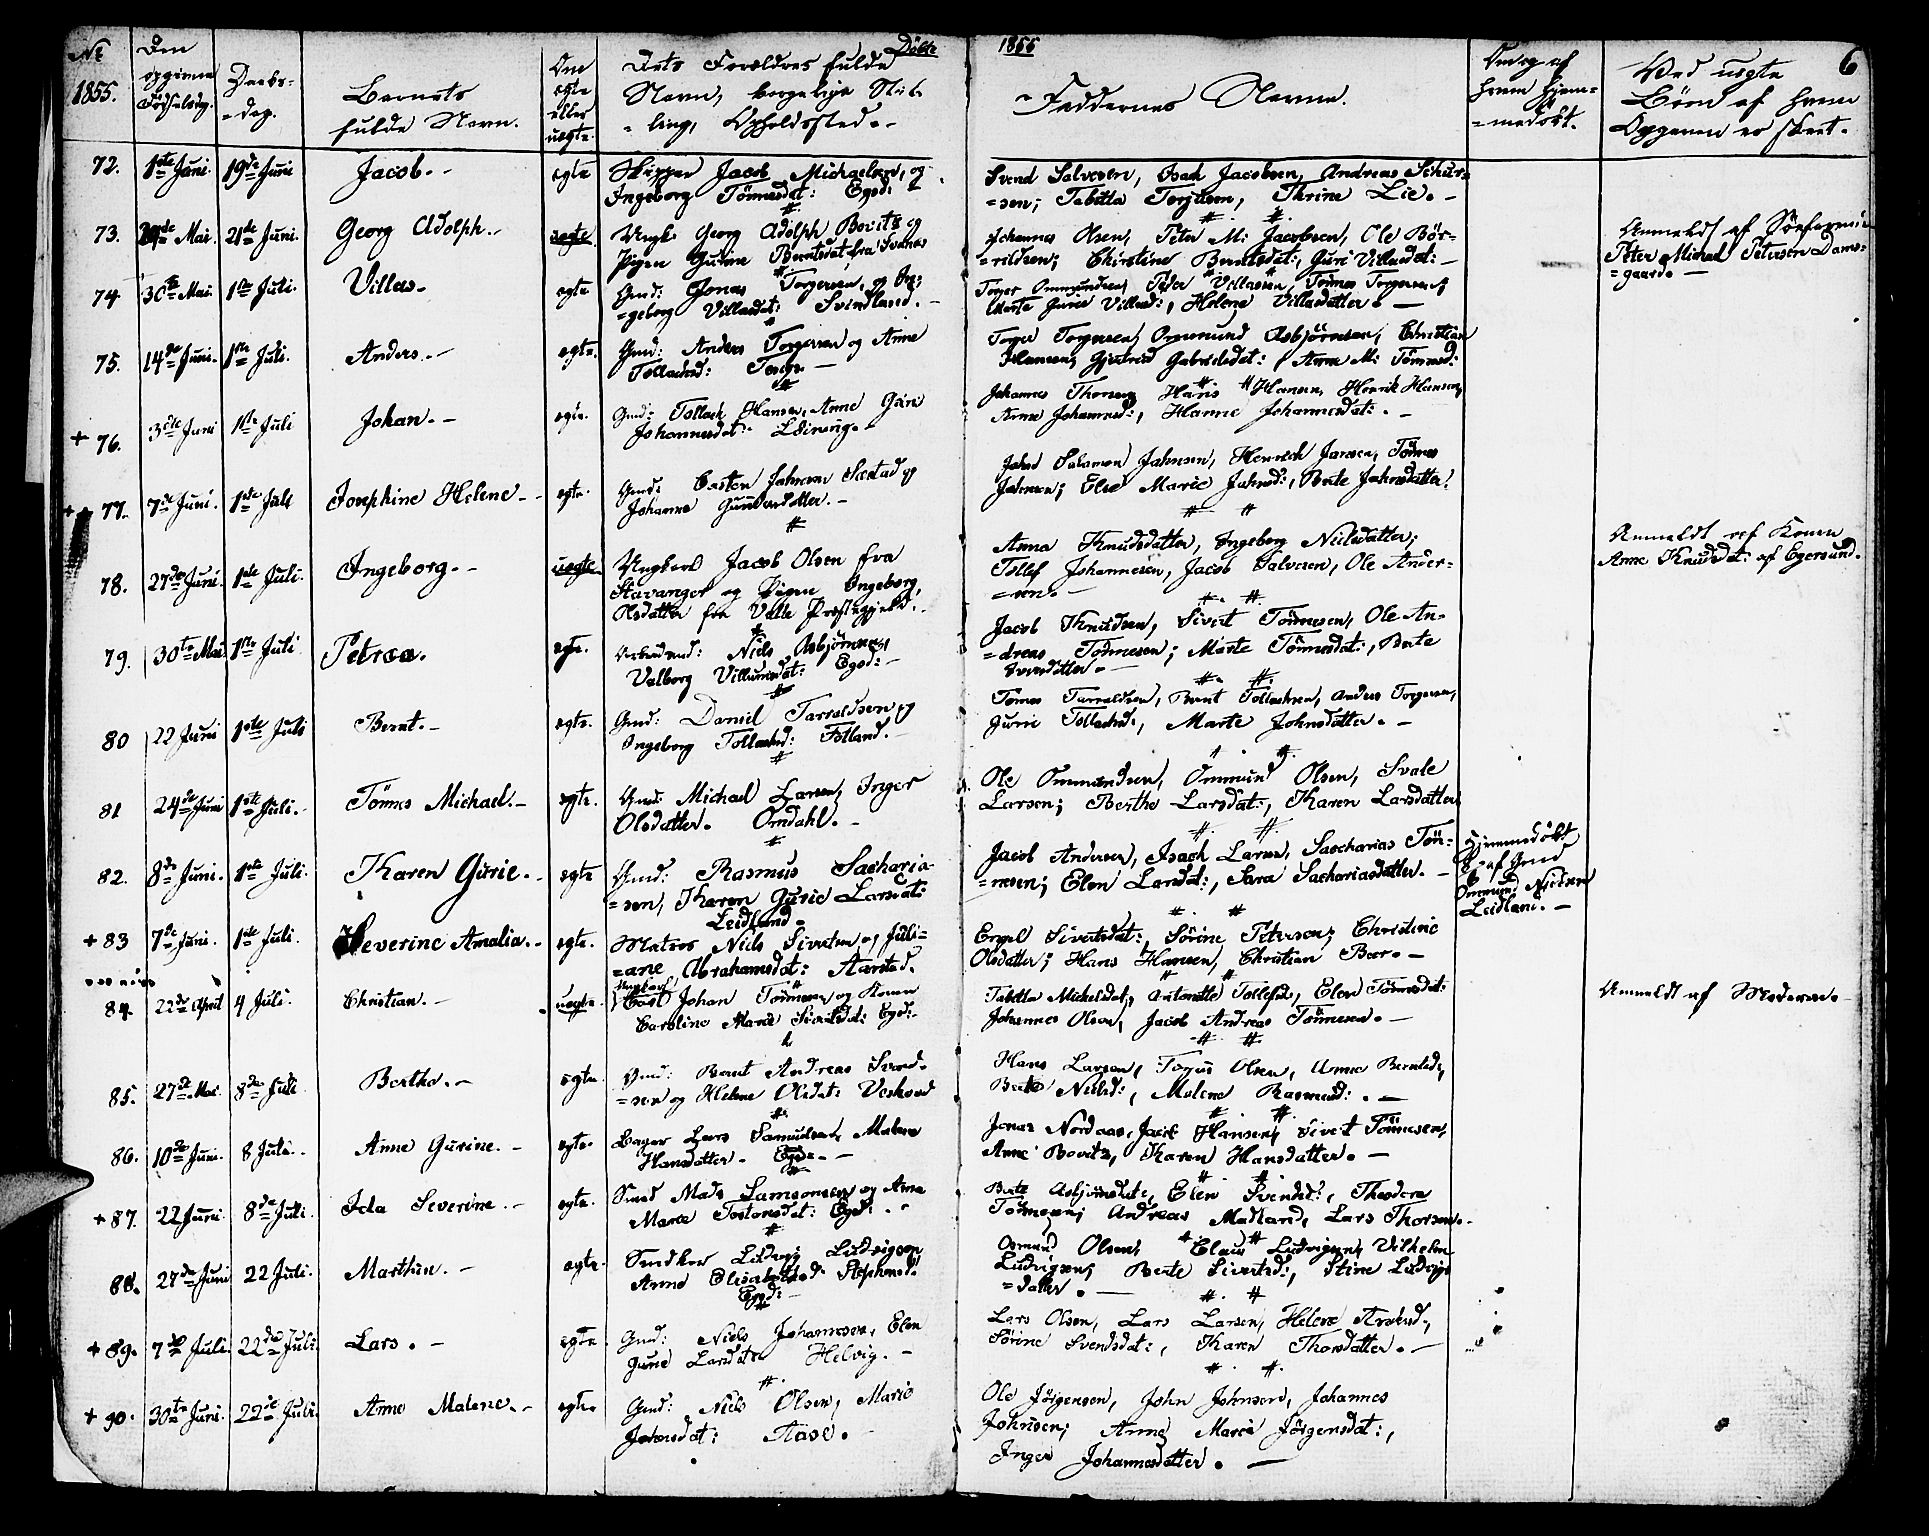 Døbte
1855
6
No
1855.
Den opgivne Fødselsdag.
Daabs-
=dag.
Barnets
fulde Navn.
Om
egte
eller
uegte.
Dets Forældres fulde
Navn, borgerlige Stil-
=ling, Opholdssted.-
Faddernes Navne.
Om og af
hvem Hjem-
=medøbt.
Ved uegte
Børn af hvem
Opgaven er skeet.-
72. 1ste Juni. 19de Juni Jacob.- egte Skipper Jacob Michaelsen, og
Ingeborg Tönnesdat: Egsd:-
Svend Salvesen, Isach Jacobsen, Andreas
=sen; Tabitta Torjusen, Thrine Lie.-
73. Mai. 21de Juni. Georg Adolph.- uegte Ungk: Georg Adolph Bovitz og
Pigen Gurine Berntsdat: fra
Johannes Olsen, Peter M: Jacobsen, Ole Bör-
=rildsen; Christine Berntsdat:, Guri Villasdat:-
Anmeldt af
Peter Michael Petersen Dams-
=gaard.-
74. 30te Mai. 1ste Juli. Villas.- egte Gmd: Jonas Torgersen, og In-
=geborg Villasdat: Svindland.-
Torger Ommundsen, Peder Villassen, Tönnes Torgersen,
Marte Gurie Villasd:, Helene Villasdatter.-
75. 14de Juni. 1ste Juli. Anders.- egte. Gmd: Anders Torgersen og Anne
Tollachsd:
Torger Torgersen, Ommund Asbjörnsen, Christian
Hansen, Gjertrud Gabrielsdat:, Anna M: Tönnesd:
+ 76. 3die Juni 1ste Juli Johan.- egte. Gmd: Tollach Hansen, Anne Gurie
Johannesdat:
Johannes Thorsen, Hans Hansen, Henrik Hansen,
Anne Johannesd:, Hanne Johannesdat:.-
77. 7de Juni. 1ste Juli Josephine Helene.- egte. Gmd: Carsten Jahnsen Sæstad og
Johanne Gundersdatter.-
Salamon Jahnsen, Henrich Jansen, Tönnes
Jahnsen; Else Marie Jahnsd:, Berte Jahnsdatter.
78. 27de Juni. 1ste Juli. Ingeborg.- uegte. Ungkarl Jacob Olsen fra
Stavanger og Pigen Ingeborg
Olsdatter fra Valle Præstegjeld.-
Anna Knudsdatter, Ingeborg Nielsdatter;
Tollef Johannesen, Jacob Salvesen, Ole Ander-
=sen.-
Anmeldt af Konen
Anne Knudsdat: af Egersund.
79. 30te Mai. 1ste Juli Petrea. egte. Niels Asbjörnsen,
Valborg Villumsdat: Egsd:-
Jacob Knudsen, Sivert Tönnesen, Ole An-
=dreas Tönnesen; Marte Tönnesdat:, Berte
Iversdatter.-
80 22 Juni 1ste Juli Bernt.- egte. Gmd: Daniel Tarraldsen og
Ingeborg Tollachsd: Fotland.
Tönnes Tarraldsen, Bernt Tollachsen, Anders Torgersen,
Gurie Tollachsd:, Marte Johnsdatter.-
81 24de Juni 1ste Juli. Tönnes Michael.- egte. Gmd: Michael Larsen, Inger
Olsdatter. Omdahl.-
Ole Ommundsen, Ommund Olsen, Svale
Larsen; Berthe Larsdat:, Karen Larsdatter
82. 8de Juni. 1ste Juli. Karen Gurie.- egte Gmd: Rasmus Sacharia-
=sen, Karen Gurie Larsdat:
Leidland.-
Jacob Andersen, Isach Larsen, Sacharias Tön-
=nesen; Elen Larsdat:, Sara Sachariasdatter.-
Hjemmedöbt
af Gmd
Ommund Nielsen
Leidland.-
+ 83 7de Juni. 1ste Juli. Severine Amalia.- egte. Matros Niels Sivertsen og Juli-
=ane Abrahamsdat: Aarstad.
Engel Sivertsdat:, Sörine Petersen, Christine
Olsdatter; Hans Hansen, Christian Beer.-
84. 22de April 4 Juli. Christian.- uegte. Ungkarl
Carl Johan Tönnesen og Konen
Caroline Marie Sivertsdat: Egsd:-
Tabitta Michelsdat:, Antonette Tollefsd:, Elen Tönnesdat:
Johannes Olsen, Jacob Andreas Tönnesen.-
Anmeldt af Moderen.-
85. 27de Mai. 8de Juli Berthe.- egte. Gmd: Bernt Andreas Svend-
=sen og Helene Olsdat:
Hans Larsen, Torjus Olsen, Anne Berntsd:,
Berte Nielsd:, Malene Rasmusd:.-
86. 10de Juni. 8 Juli. Anne Gurine.- egte. Bager Lars Samuelsen, Malene
Hansdatter. Egsd:.-
Jonas Nordaas, Jacob Hansen, Sivert Tönnesen,
Anne Bovitz, Karen Hansdatter.-
+ 87. 22 Juni. 8de Juli. Ida Severine.- egte. Smed Mads Samsonsen og Anne
Marie Tostensdat: Egsd:.-
Berte Asbjörnsdat:, Elen Svendsd:, Theodora
Tönnesen; Andreas Madland, Lars Thorsen.-
88. 27de Juni 22 Juli. Marthin.- egte. Snedker Ludvig Ludvigsen
Anne Elisabeth Stephensd:
Egsd:-
Osmund Olsen, Claus Ludvigsen, Vilhelm
Ludvigsen; Berte Sivertsd:, Stine Ludvigs
=datter.-
+ 89. 7de Juli. 22de Juli. Lars.- egte. Gmd: Niels Johannesen, Elen
Gurie Larsdat: Helvig.-
Lars Olsen, Lars Larsen, Helene
Sörine Svendsdat:, Karen Thorsdatter.-
+ 90. 30te Juni. 22de Juli. Anne Malene.- egte Gmd: Niels Olsen, Marie
Johnsdat: Aase.-
Ole Jörgensen, John Johnsen, Johannes
Johnsen; Anne Marie Jörgensdat:,
Inger Johannesdatter.-